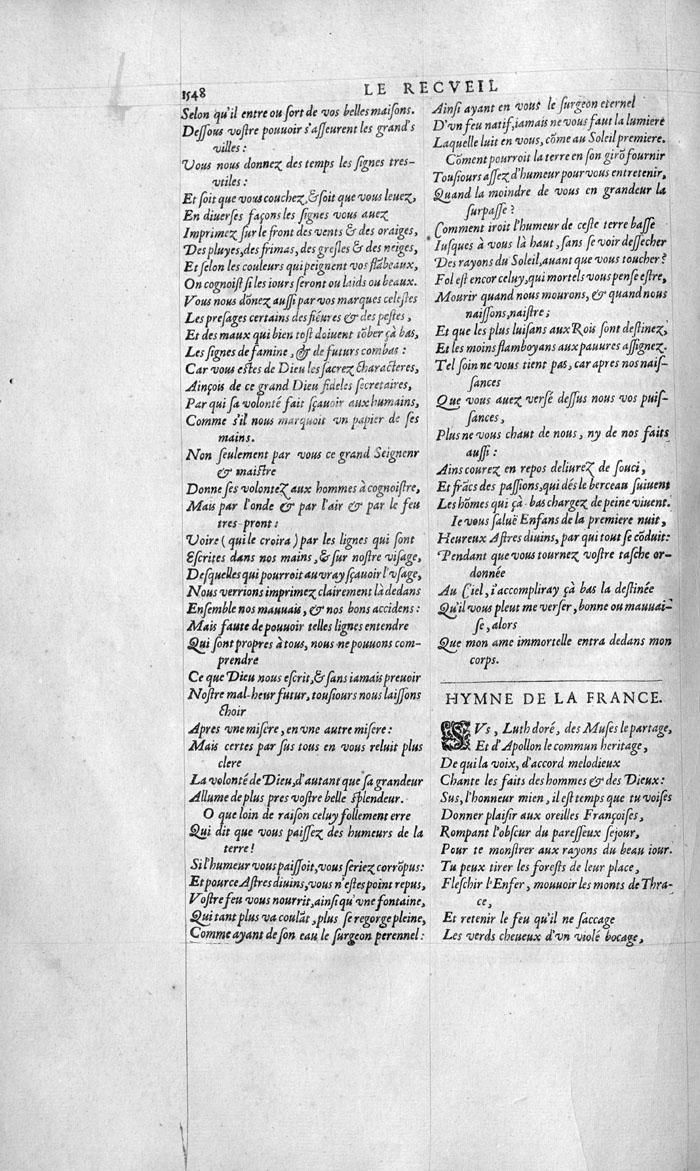 1548
LE RECVEIL
Selon qu'il entre ou ſort de vos belles maiſons.
Deſſous voſtre pouuoir s'aſſeurent les grand's
villes:
Vous nous donnez des temps les ſignes tres-
vtiles:
Et ſoit que vous couchez, & ſoit que vous leuez,
En diuerſes façons les ſignes vous auez
Imprimez ſur le front des vents & des oraiges,
Des pluyes, des frimas, des greſles & des neiges,
Et ſelon les couleurs qui peignent vos flābeaux,
On cognoiſt ſi les iours ſeront ou laids ou beaux.
Vous nous dōnez auſſi par vos marques celeſtes
Les preſages certains des fiéures & des peſtes,
Et des maux qui bien toſt doiuent tōber çà bas,
Les ſignes de famine, & de futurs combas:
Car vous eſtes de Dieu les ſacrez characteres,
Ainçois de ce grand Dieu fideles ſecretaires,
Par qui ſa volonté fait ſçauoir aux humains,
Comme s'il nous marquoit vn papier de ſes
mains.
Non ſeulement par vous ce grand Seigneur
& maiſtre
Donne ſes volontez aux hommes à cognoiſtre,
Mais par l'onde & par l'air & par le feu
tres-pront:
Voire (qui le croira) par les lignes qui ſont
Eſcrites dans nos mains, & ſur noſtre viſage,
Deſquelles qui pourroit au vray ſçauoir l'vſage,
Nous verrions imprimez clairement là dedans
Enſemble nos mauuais, & nos bons accidens:
Mais faute de pouuoir telles lignes entendre
Qui ſont propres à tous, nous ne pouuons com-
prendre
Ce que Dieu nous eſcrit, & ſans iamais preuoir
Noſtre mal-heur futur, touſiours nous laiſſons
choir
Apres vne miſere, en vne autre miſere:
Mais certes par ſus tous en vous reluit plus
clere
La volonté de Dieu, d'autant que ſa grandeur
Allume de plus pres voſtre belle ſplendeur.
O que loin de raiſon celuy follement erre
Qui dit que vous paiſſez des humeurs de la
terre!
Si l'humeur vous paiſſoit, vous ſeriez corrōpus:
Et pource Aſtres diuins, vous n'eſtes point repus,
Voſtre feu vous nourrit, ainſi qu'vne fontaine,
Qui tant plus va coulāt, plus ſe regorge pleine,
Comme ayant de ſon eau le ſurgeon perennel:
Ainſi ayant en vous le ſurgeon eternel
D'vn feu natif, iamais ne vous faut la lumiere
Laquelle luit en vous, cōme au Soleil premiere.
Cōment pourroit la terre en ſon girō fournir
Touſiours aſſez d'humeur pour vous entretenir,
Quand la moindre de vous en grandeur la
ſurpaſſe?
Comment iroit l'humeur de ceſte terre baſſe
Iuſques à vous là haut, ſans ſe voir deſſecher
Des rayons du Soleil, auant que vous toucher?
Fol eſt encor celuy, qui mortels vous penſe eſtre,
Mourir quand nous mourons, & quand nous
naiſſons, naiſtre;
Et que les plus luiſans aux Rois ſont deſtinez,
Et les moins flamboyans aux pauures aſſignez.
Tel ſoin ne vous tient pas, car apres nos naiſ-
ſances
Que vous auez verſé deſſus nous vos puiſ-
ſances,
Plus ne vous chaut de nous, ny de nos faits
auſſi:
Ains courez en repos deliurez de ſouci,
Et frācs des paſſions, qui dés le berceau ſuiuent
Les hōmes qui çà-bas chargez de peine viuent.
Ie vous ſaluë Enfans de la premiere nuit,
Heureux Aſtres diuins, par qui tout ſe cōduit:
Pendant que vous tournez voſtre taſche or-
donnée
Au Ciel, i'accompliray çà bas la deſtinée
Qu'il vous pleut me verſer, bonne ou mauuai-
ſe, alors
Que mon ame immortelle entra dedans mon
corps.
HYMNE DE LA FRANCE.
SVs, Luth doré, des Muſes le partage,
Et d'Apollon le commun heritage,
De qui la voix, d'accord melodieux
Chante les faits des hommes & des Dieux:
Sus, l'honneur mien, il eſt temps que tu voiſes
Donner plaiſir aux oreilles Françoiſes,
Rompant l'obſcur du pareſſeux ſejour,
Pour te monſtrer aux rayons du beau iour.
Tu peux tirer les foreſts de leur place,
Fleſchir l'Enfer, mouuoir les monts de Thra-
ce,
Et retenir le feu qu'il ne ſaccage
Les verds cheueux d'vn violé bocage,